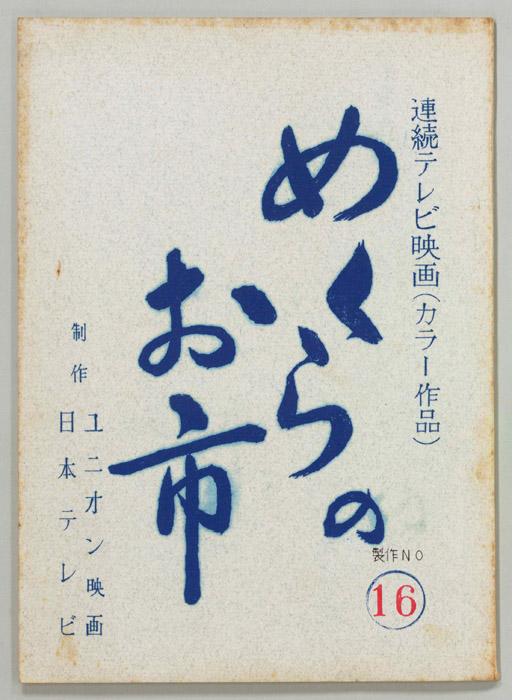 連続テレビ映画(カラー作品)
めくらの
お市
製作NO
16
制作
ユニオン映画
日本テレビ